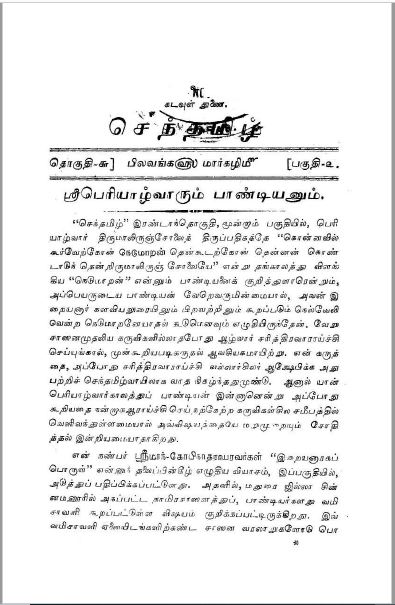 கடவுள் துணை.
செந்தமிழ்
தொகுதி-௬] பிலவங்கவூ மார்கழிமீ [பகுதி-௨.
ஸ்ரீபெரியாழ்வாரும் பாண்டியனும்.
“செந்தமிழ்” இரண்டாந்தொகுதி, மூன்றாம் பகுதியில், பெரி
யாழ்வார் திருமாலிருஞ்சோலைத் திருப்பதிகத்தே “கொன்னவில்
கூர்வேற்கோன் நெடுமாறன் தென்கூடற்கோன் தென்னன் கொண்
டாடுந் தென்றிருமாலிருஞ் சோலையே” என்று தங்காலத்து விளங்
கிய “நெடுமாறன்” என்னும் பாண்டியனைக் குறித்துளாரென்றும்,
அப்பெயருடைய பாண்டியன் வேறெவருமின்மையால், அவன் இ
றையனார் களவியலுரையிலும் பிறவற்றிலும் கூறப்படும் நெல்வேலி
வென்ற நெடுமாறனேயாதல் கூடுமெனவும் எழுதியிருந்தேன். வேறு
சாஸனமுதலிய கருவிகளில்லாதபோது ஆழ்வார் சரித்திரவாராய்ச்சி
செய்யுங்கால், முன்கூறியபடிகருதல் ஆவசியகமாயிற்று. என் கருத்
தை, அப்போது சரித்திரவாராய்ச்சி வல்லார்சிலர் ஆக்ஷேபிக்க அது
பற்றிச் செந்தமிழ்வாயிலாக வாத நிகழ்ந்ததுமுண்டு. ஆனால் யான்
பெரியாழ்வார்காலத்துப் பாண்டியன் இன்னானென்று அப்போது
கூறியதை நன்குஆராய்ச்சி செய்தற்கேற்ற கருவிகள்சில சமீபத்தில்
வெளிவந்துள்ளமையால் அவ்விஷயத்தையே மறுமுறையும் சோதி
த்தல் இன்றியமையாதாகிறது.
என் நண்பர் ஸ்ரீமாந்-கோபிநாதராயரவர்கள் “இறையனாரகப்
பொருள்” என்னுந் தலைப்பின்கீழ் எழுதிய வியாசம், இப்பகுதியில்,
அடுத்துப் பதிப்பிக்கப்பட்டுளது. அதனில், மதுரை ஜில்லா சின்
னமனூரில் அகப்பட்ட தாமிரசாஸனத்துப், பாண்டியர்களது வமி
சாவளி கூறப்பட்டுள்ள விஷயம் குறிக்கப்பட்டிருக்கிறது. இவ்
வமிசாவளி ஏனையிடங்களிற்கண்ட சாஸன வரலாறுகளோடும் பொ